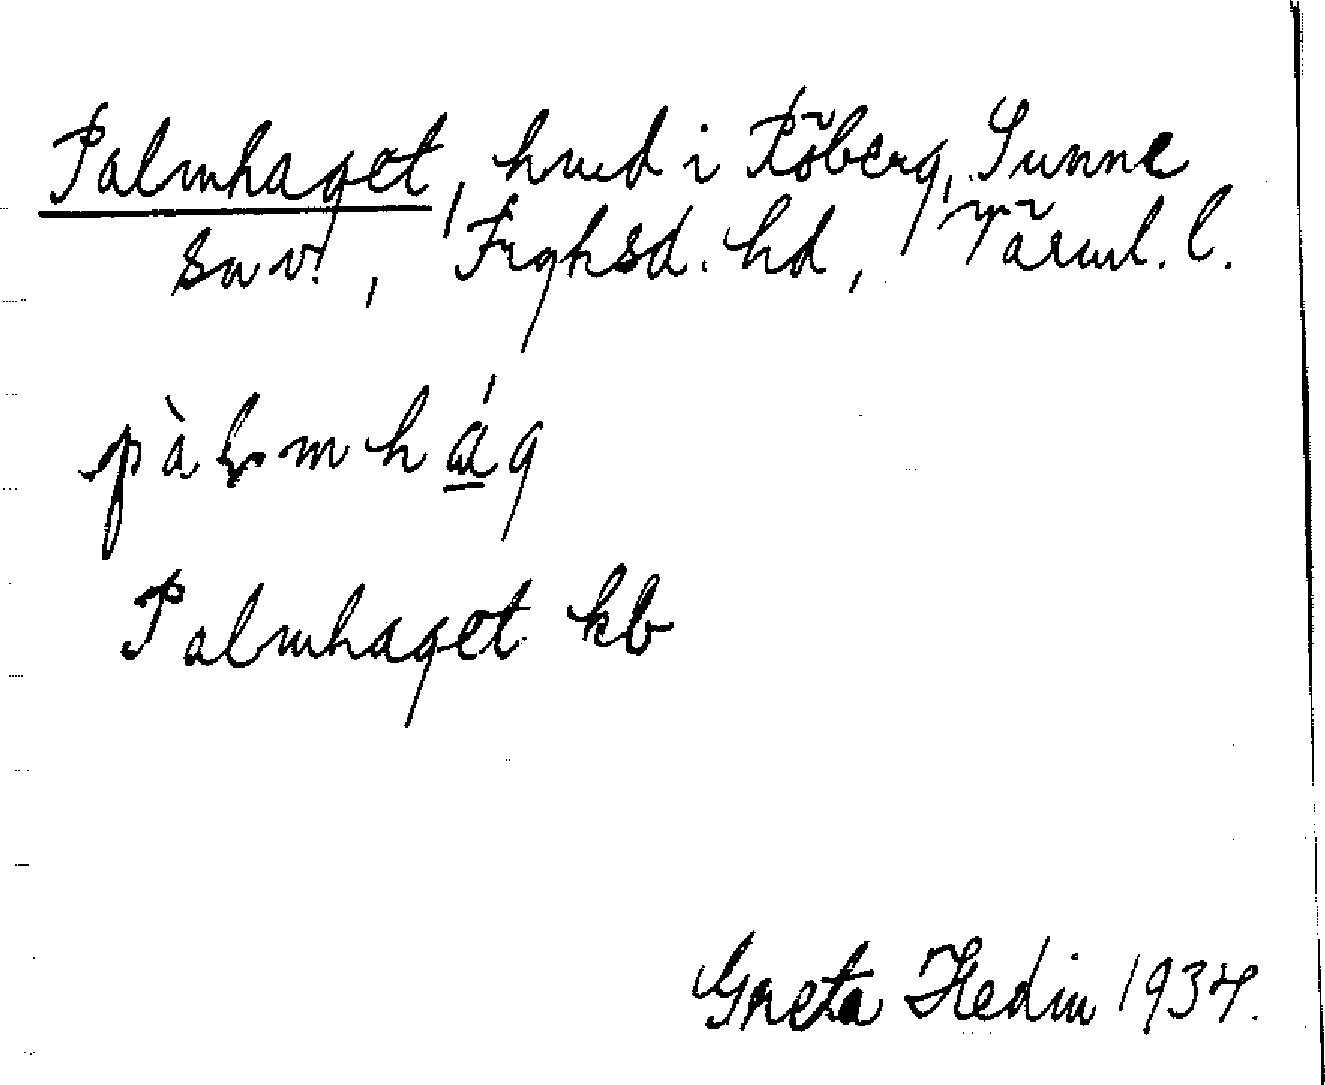 Palmhaget, hmd i Röberg, Sunne
sn, Fryksd. hd, Värml. l.
pàḷmhág
Palmhaget kb
Greta Hedin 1934.